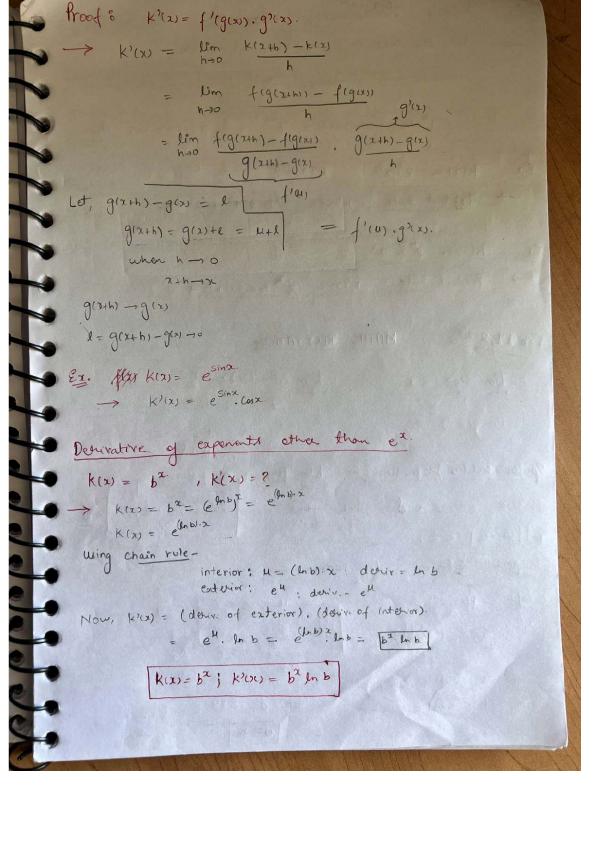 Proof : K'(x) = f'(g(x)) · g'(x).
→ K'(x) = lim h→0 K(x+h) - K(x) / h
= lim h→0 f(g(x+h)) - f(g(x)) / h
g'(x)
= lim h→0 f(g(x+h) - f(g(x)) / g(x+h) - g(x) · g(x+h) - g(x) / h
f'(u)
Let, g(x+h) - g(x) = l
g(x+h) = g(x)+l = u+l = f'(u) · g'(x).
when h → 0
x+h → x
g(x+h) → g(x)
l = g(x+h) - g(x) → 0
Ex. K(x) = e^sinx
→ K'(x) = e^sinx · cosx
Derivative of exponents other than e^x.
K(x) = b^x , K'(x) = ?
→ K(x) = b^x = (e^ln b)^x = e^(ln b)·x
K(x) = e^(ln b)·x
Using chain rule -
interior : u = (ln b)·x deriv = ln b
exterior : e^u : deriv. - e^u
Now, K'(x) = (deriv. of exterior). (deriv. of interior).
= e^u · ln b = e^(ln b) x · ln b = b^x ln b
K(x) = b^x ; K'(x) = b^x ln b